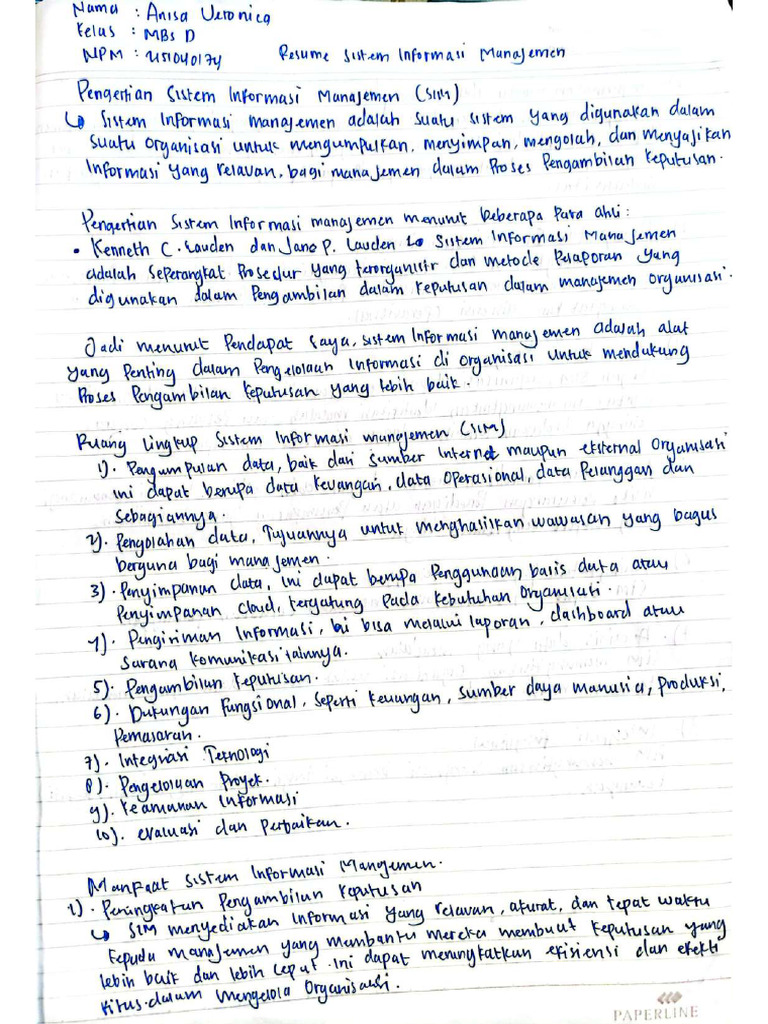 Nama : Anisa Veronica
Kelas : MBS D
NPM : 2151040174 Resume Sistem Informasi Manajemen
Pengertian Sistem Informasi Manajemen (SIM)
↳ Sistem Informasi manajemen adalah suatu sistem yang digunakan dalam
suatu organisasi untuk mengumpulkan, menyimpan, mengolah, dan menyajikan
informasi yang relavan, bagi manajemen dalam Proses Pengambilan Keputusan.
Pengertian Sistem Informasi manajemen menurut beberapa Para ahli :
• Kenneth C. Lauden dan Jane P. Lauden ↳ Sistem Informasi Manajemen
adalah seperangkat Prosedur yang terorganisir dan metode Pelaporan yang
digunakan dalam Pengambilan dalam Keputusan dalam manajemen organisasi.
Jadi menurut Pendapat saya, sistem Informasi manajemen adalah alat
yang Penting dalam Pengelolaan Informasi di organisasi untuk mendukung
Proses Pengambilan Keputusan yang lebih baik.
Ruang Lingkup Sistem Informasi manajemen (SIM)
1). Pengumpulan data, baik dari sumber Internet maupun eksternal Organisasi
ini dapat berupa data keuangan, data operasional, data Pelanggan dan
Sebagiannya.
2). Pengolahan data, Tujuannya untuk menghasilkan wawasan yang bagus
berguna bagi manajemen.
3). Penyimpanan data, ini dapat berupa Penggunaan basis data atau
Penyimpanan cloud, tergatung Pada kebutuhan Organisasi.
4). Pengiriman Informasi, ini bisa melalui laporan, dashboard atau
Sarana komunikasi lainnya.
5). Pengambilan Keputusan.
6). Dukungan Fungsional, seperti keuangan, sumber daya manusia, Produksi,
Pemasaran.
7). Integriasi Teknologi
8). Pengelolaan Proyek.
9). Keamanan Informasi
10). evaluasi dan Perbaikan.
Manfaat Sistem Informasi Mangemen.
1). Peningkatan Pengambilan Keputusan
↳ SIM menyediakan Informasi yang relavan, akurat, dan tepat waktu
kepada manajemen yang membantu mereka membuat keputusan yang
lebih baik dan lebih cepat. Ini dapat meningkatkan efisiensi dan efekti
Fitus dalam Mengelola Organisasi.
PAPERLINE